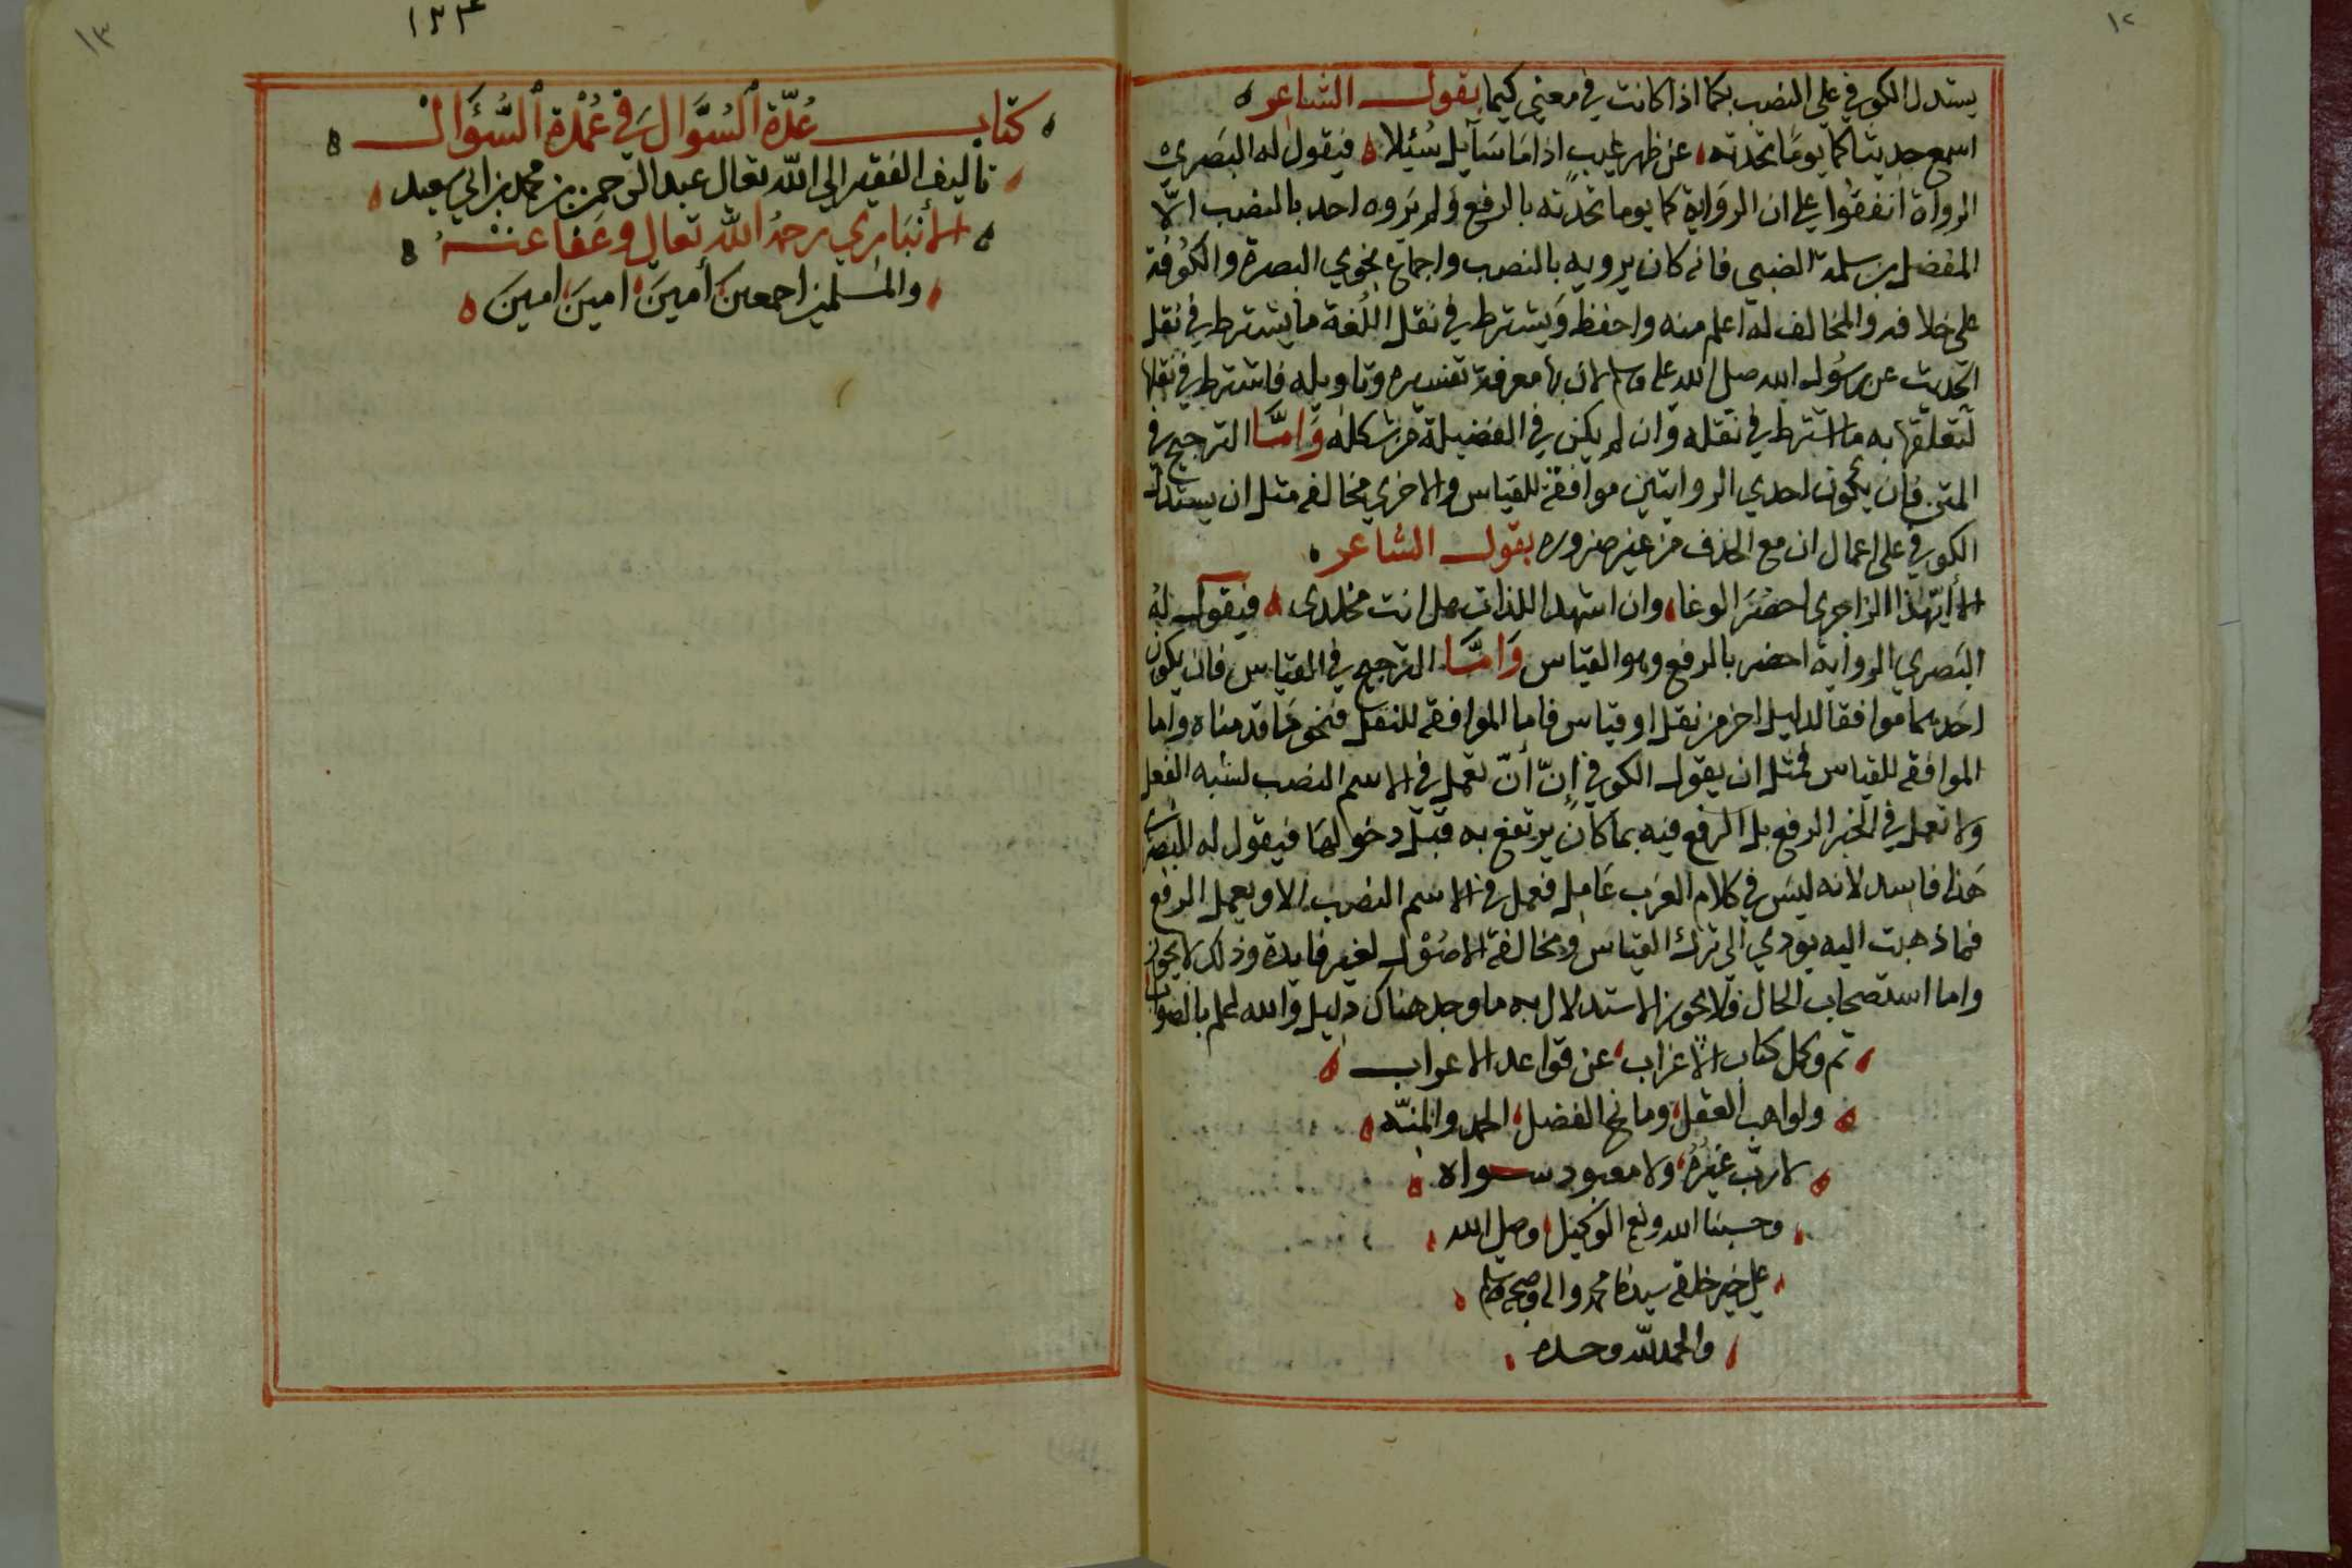 ١٢
يستدل الكوفي على النصب بكما اذا كانت في معني كيما بقول الشاعر ه
اسمع حديثا كما يوما تحدثه، عن ظهر غيب اذا ما سآيل سُئِلا ه فيقول له البصري
الرواة اتفقوا على ان الرواية كما يوما تحدثه بالرفع ولم يروه احد بالنصب الّا
المفضل بن سلمة الضبي فانه كان يرويه بالنصب واجماع نحويي البصرة والكوفة
على خلافه والمخالف له اعلم منه واحفظ ويشترط في نقل اللغة ما يشترط في نقل
الحديث عن رسول الله صلى الله عليه وسلم لان بها معرفة تفسيره وتاويله فاشترط في نقلها
لتعلقها به ما اشترط في نقله وان لم يكن في الفضيلة من شكله وَامَّا الترجيح في
المتن فان يكون احدي الروايتين موافقة للقياس والاخري مخالفه مثل ان يستدل
الكوفي على اعمال ان مع الحذف من غير ضروره بقول الشاعر ه
الا ايّهذا الزاجري احضرَ الوغا، وان اشهد اللذات هل انت مخلدى ه فيقول له
البصري الرواية احضر بالرفع وهو القياس وَامَّا الترجيح في القياس فان يكون
احدهما موافقا لدليل اخر من نقل او قياس فاما الموافقه للنقل فنحو ما قدمناه واما
الموافقه للقياس فمثل ان يقول الكوفي إنّ أنّ تعمل في الاسم النصب لشبه الفعل
ولا تعمل في الخبر الرفع بل الرفع فيه بما كان يرتفع به قبل دخولها فيقول له البصري
هذا فاسد لانه ليس في كلام العرب عامل فعمل في الاسم النصب الا ويعمل الرفع
فما ذهبت اليه يودي الى ترك القياس ومخالفة الاصول لغير فايدة وذلك لا يجوز
واما استصحاب الحال فلا يجوز الاستدلال به ما وجد هناك دليل والله اعلم بالصواب
، تم وكمل كتاب الاغراب، عن قواعد الاعراب ه
ه ولواهب العقل، ومانح الفضل، الحمد والمنّه ه
ه لا ربّ غيرُه، ولا معبود سواه ه
، وحسبنا الله ونعم الوكيل، وصلى الله ،
، على خير خلقه سيدنا محمد واله وصحبه وسلم ه
، والحمد لله وحده ،
١٣
١٢٣
ه كتاب عُدّة السُؤَّال في عُمْدة السُّؤَال ه
، تأليف الفقير الي الله تعال عبد الرحمن بن محمد بن ابي سعيد ،
ه الأنبَاري رحمُ الله تعالى وعَفا عنهُ ه
، والمسلمين اجمعين، أمينَ، امينَ، امينَ ه